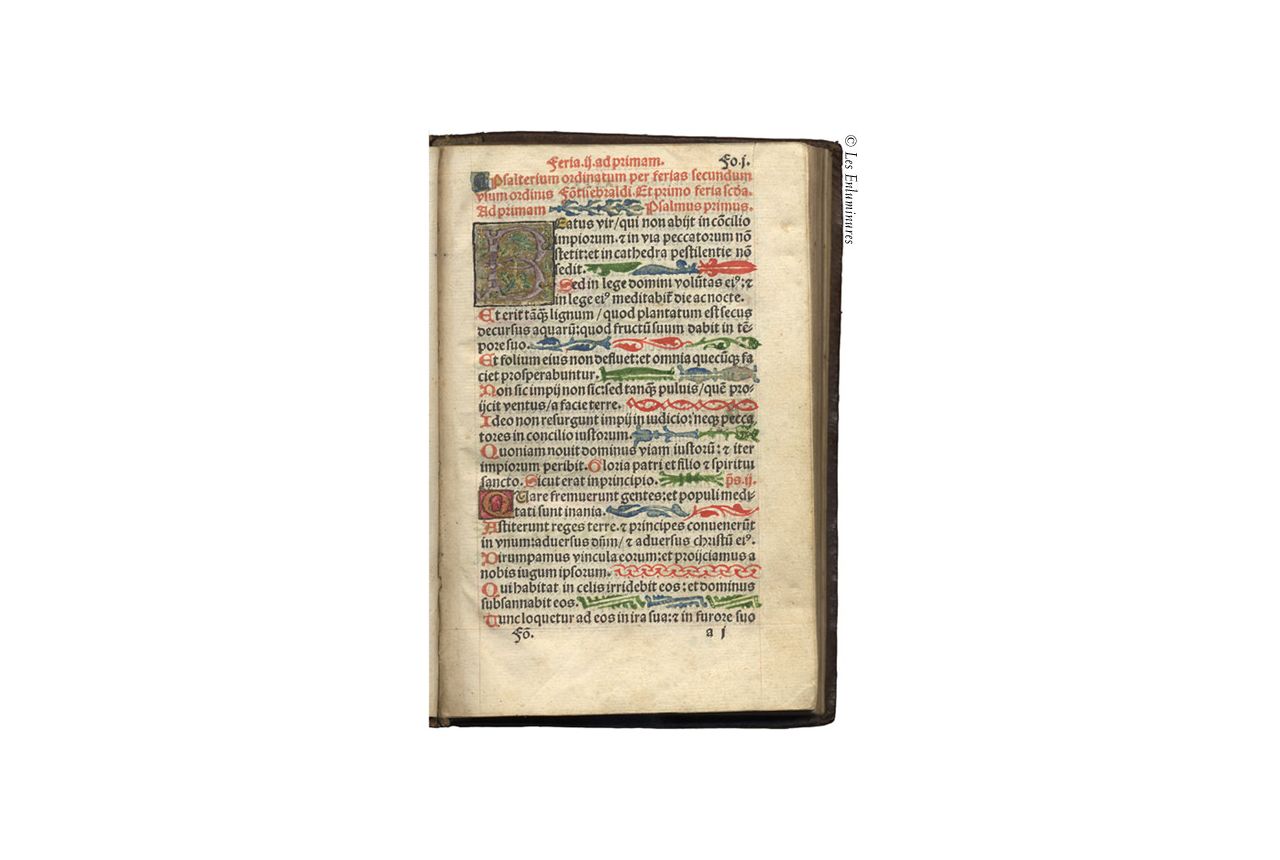 Feria.ij.ad primam. Fo.j.
Psalterium ordinatum per ferias secundum
vsum ordinis Fōtisebraldi. Et primo feria scđa.
Ad primam Psalmus primus.
Beatus vir/qui non abijt in cōcilio
impiorum. ⁊ in via peccatorum nō
stetit: et in cathedra pestilentie nō
sedit.
Sed in lege domini volūtas eiꝰ: ⁊
in lege eiꝰ meditabit᷑ die ac nocte.
Et erit tāꝙ lignum / quod plantatum est secus
decursus aquarū: quod fructū suum dabit in tē-
pore suo.
Et folium eius non defluet: et omnia quecūꝙ fa
ciet prosperabuntur.
Non sic impij non sic: sed tanꝙ puluis/quē pro-
ijcit ventus/a facie terre.
Ideo non resurgunt impij in iudicio: neqꝫ pecca
tores in concilio iustorum.
Quoniam nouit dominus viam iustorū: ⁊ iter
impiorum peribit. Gloria patri et filio ⁊ spiritui
sancto. Sicut erat in principio. p̄s.ij.
Quare fremuerunt gentes: et populi medi-
tati sunt inania.
Astiterunt reges terre. ⁊ principes conuenerūt
in vnum: aduersus dn̄m/ ⁊ aduersus christū eiꝰ.
Dirumpamus vincula eorum: et proijciamus a
nobis iugum ipsorum.
Qui habitat in celis irridebit eos: et dominus
subsannabit eos.
Tunc loquetur ad eos in ira sua: ⁊ in furore suo
Fō. a j
© Les Enluminures